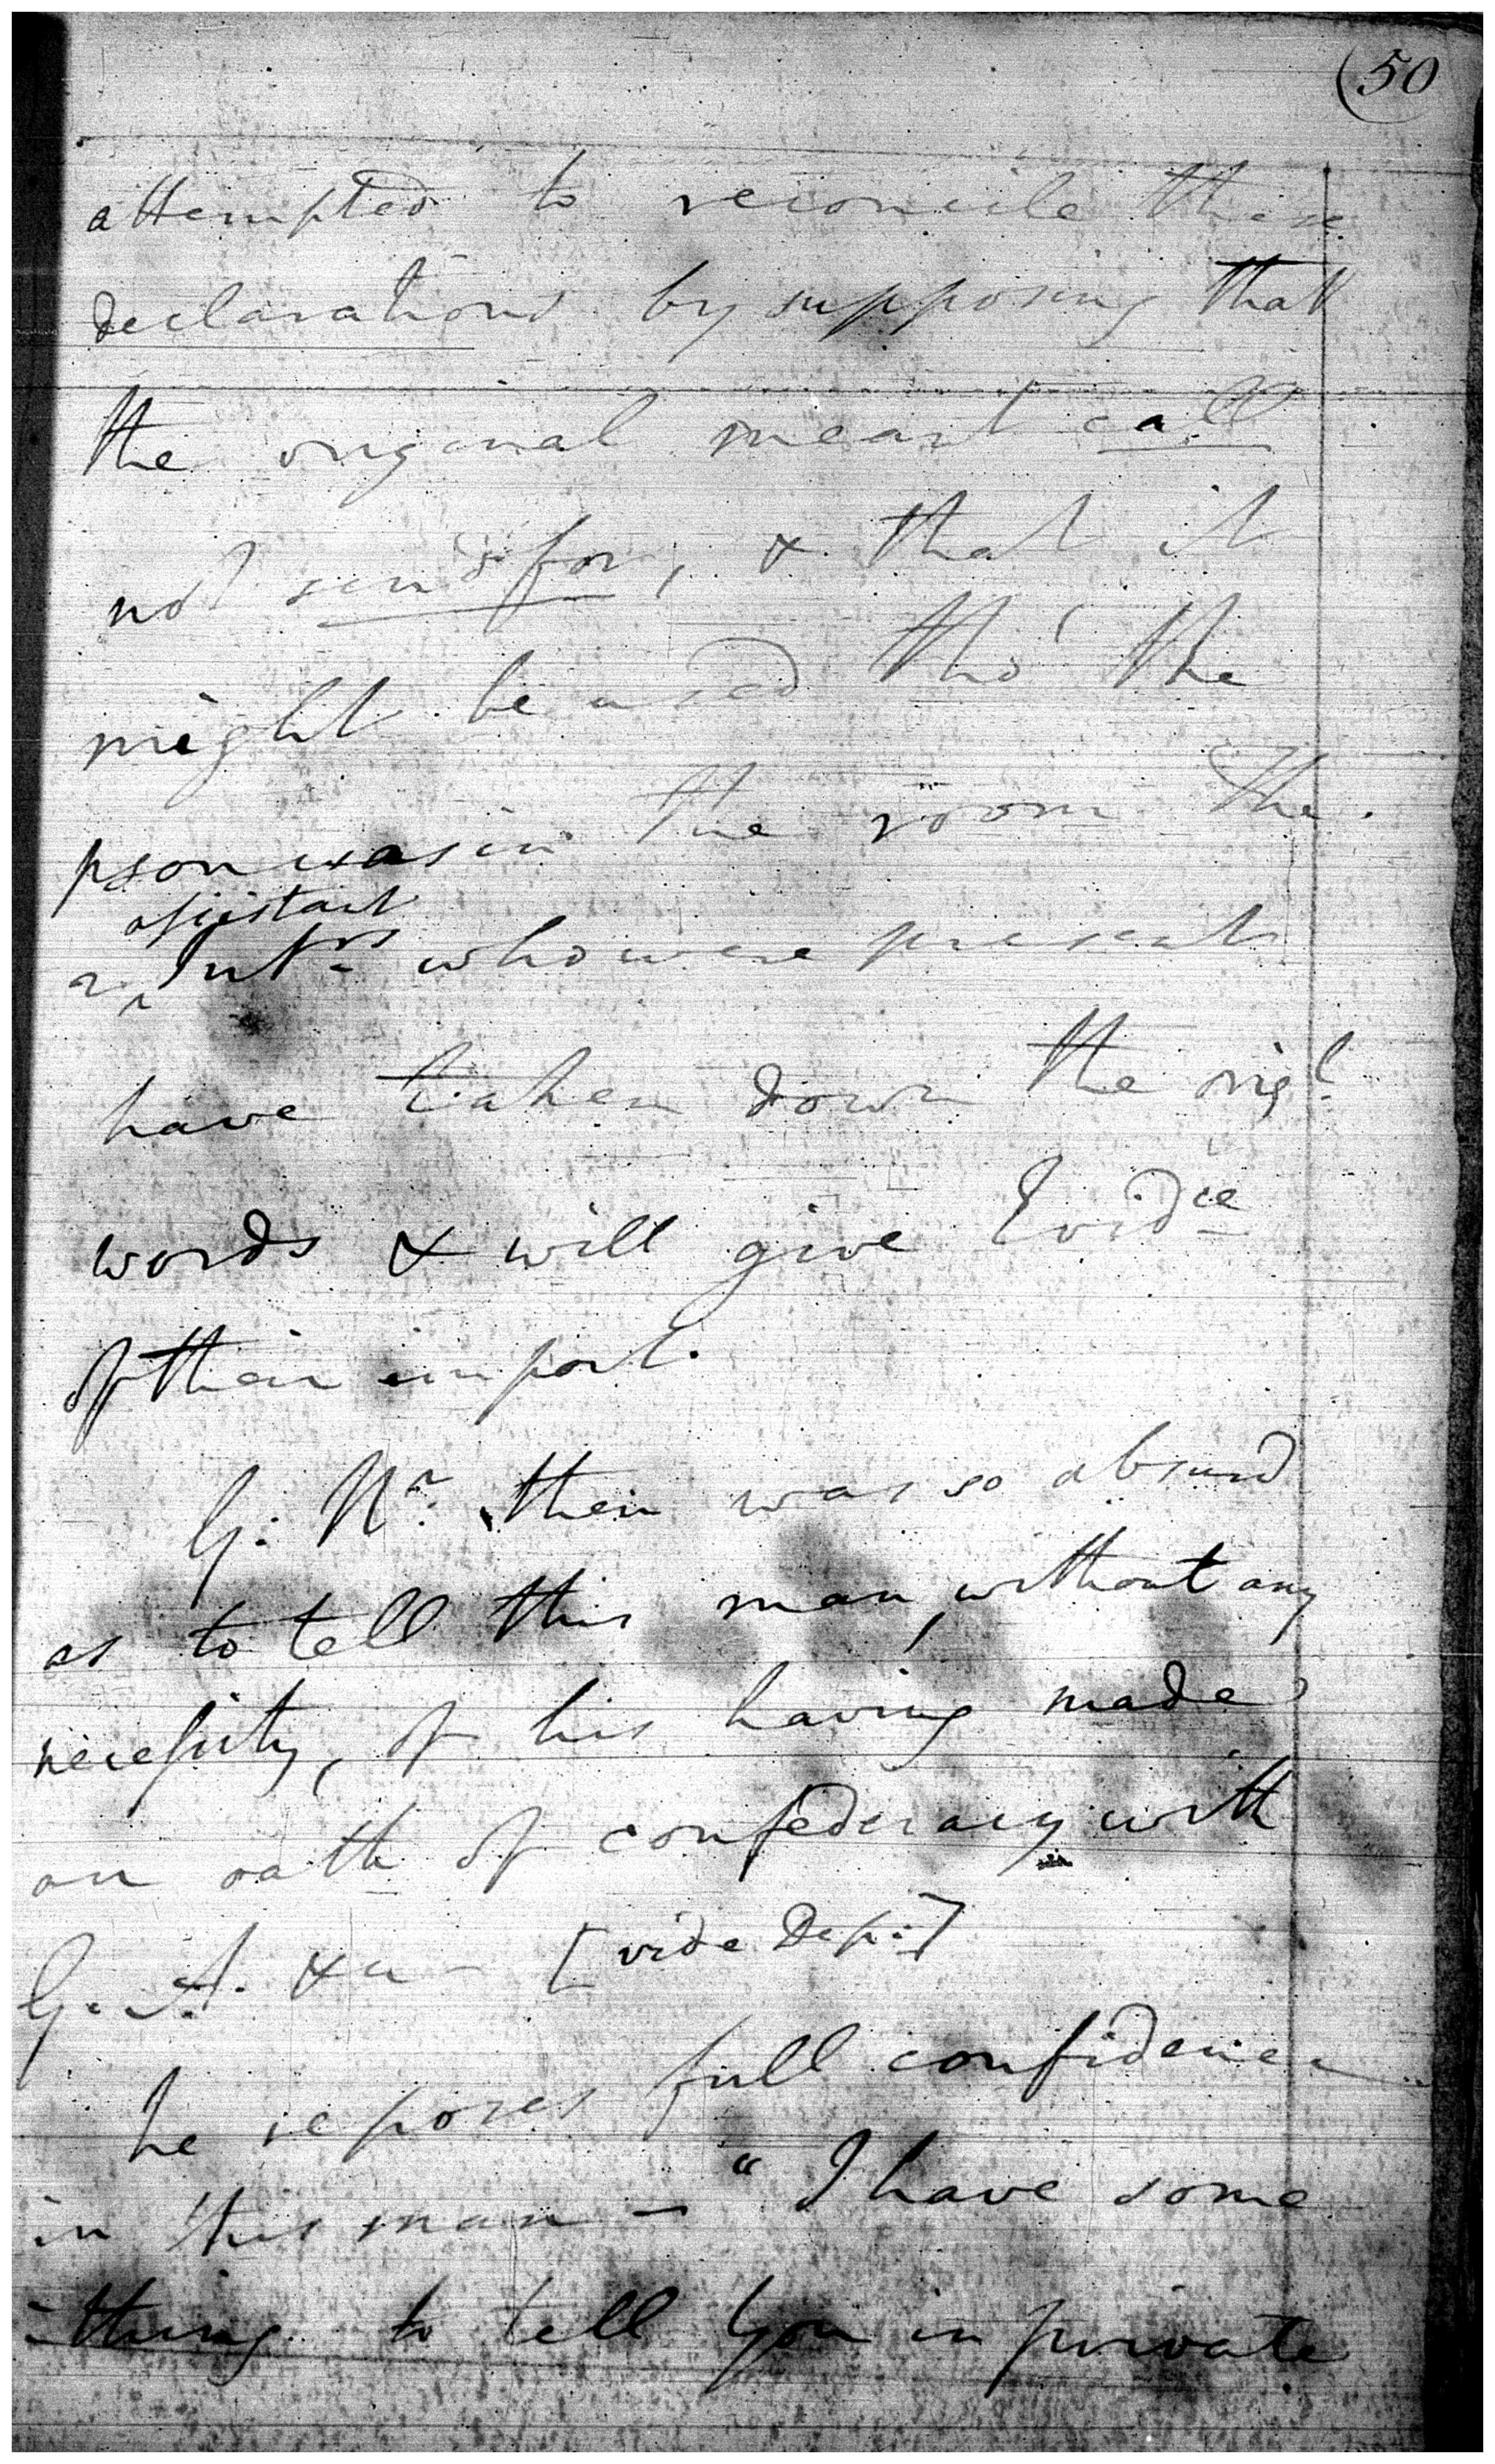 (50
attempted to reconcile these
declarations by supposing that
the original meant call
not send for, & that it
might be used tho' the
pson was in the room The
assistant
2 Intrs who were present
have taken down the origl.
words & will give Evidce
of their import.
G. Nr. then was so absurd
as to tell this man, without any
necessity, of his having made
an oath of confederacy with
G. A. &c - [vide Dep.]
he reposes full confidence
in this man - "I have some
-thing to tell you in private